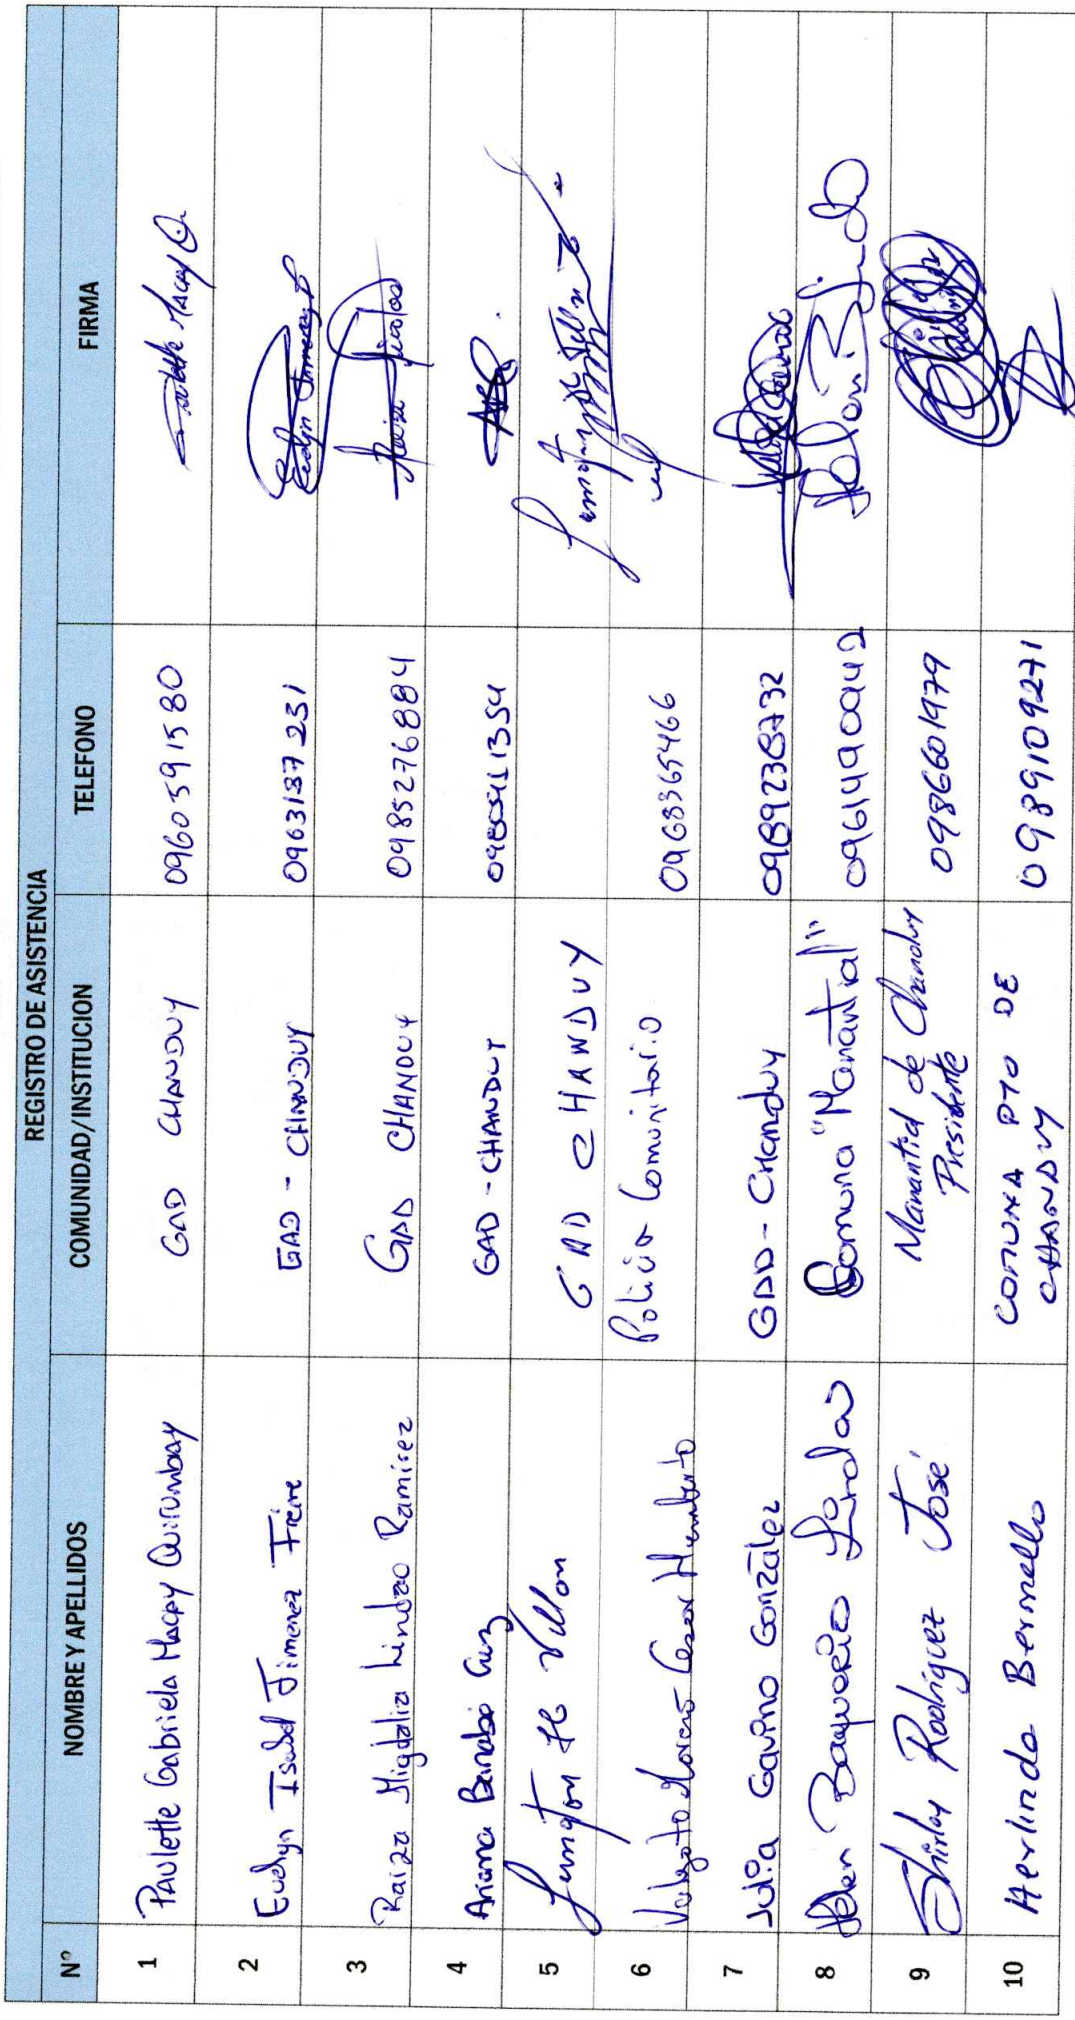 REGISTRO DE ASISTENCIA
Nº NOMBRE Y APELLIDOS COMUNIDAD/INSTITUCION TELEFONO FIRMA
1 Paulette Gabriela Macay Quirumbay GAD CHANDUY 0960591580 Paulette Macay Q.
2 Evelyn Isabel Jimenez Freire GAD - CHANDUY 0963187231 Evelyn Jimenez
3 Raiza Migdalia Lindao Ramirez GAD CHANDUY 0985276884
4 Ariana Barnabé Cruz GAD - CHANDUY
5 Villon GAD CHANDUY
6 Cesar Humberto Policia Comunitario 0968365466
7 Julia Gavino González GAD - CHANDUY 0989238732
8 Helen Baquerizo Lindao Comuna "Manantial" 0961490942
9 Shirley Rodríguez José Manantial de Chanduy
Presidente 0986601979
10 Herlinda Bermello COMUNA PTO DE
CHANDUY 0989109271